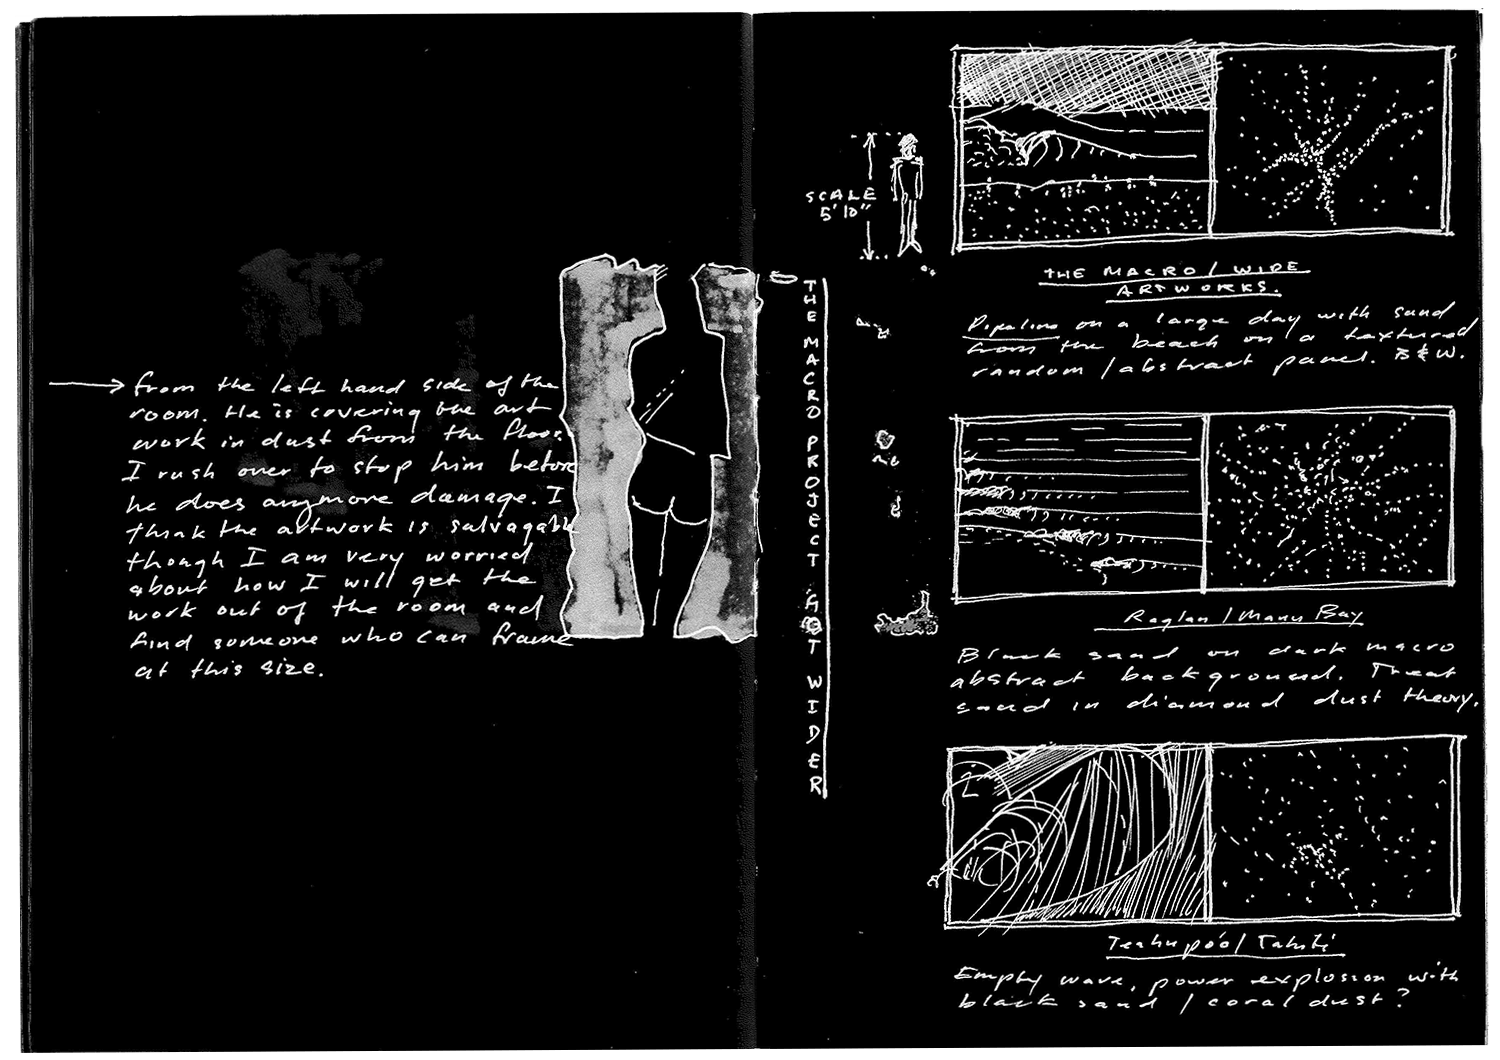 from the left hand side of the
room. He is covering the art
work in dust from the floor.
I rush over to stop him before
he does anymore damage. I
think the artwork is salvagable
though I am very worried
about how I will get the
work out of the room and
find someone who can frame
at this size.
THE MACRO PROJECT GOT WIDER
SCALE
5'10"
THE MACRO / WIDE
ARTWORKS.
Pipeline on a large day with sand
from the beach on a textured
random / abstract panel. B&W.
Raglan / Manu Bay
Black sand on dark macro
abstract background. Treat
sand in diamond dust theory.
Teahupo'o / Tahiti
Empty wave, power explosion with
black sand / coral dust?